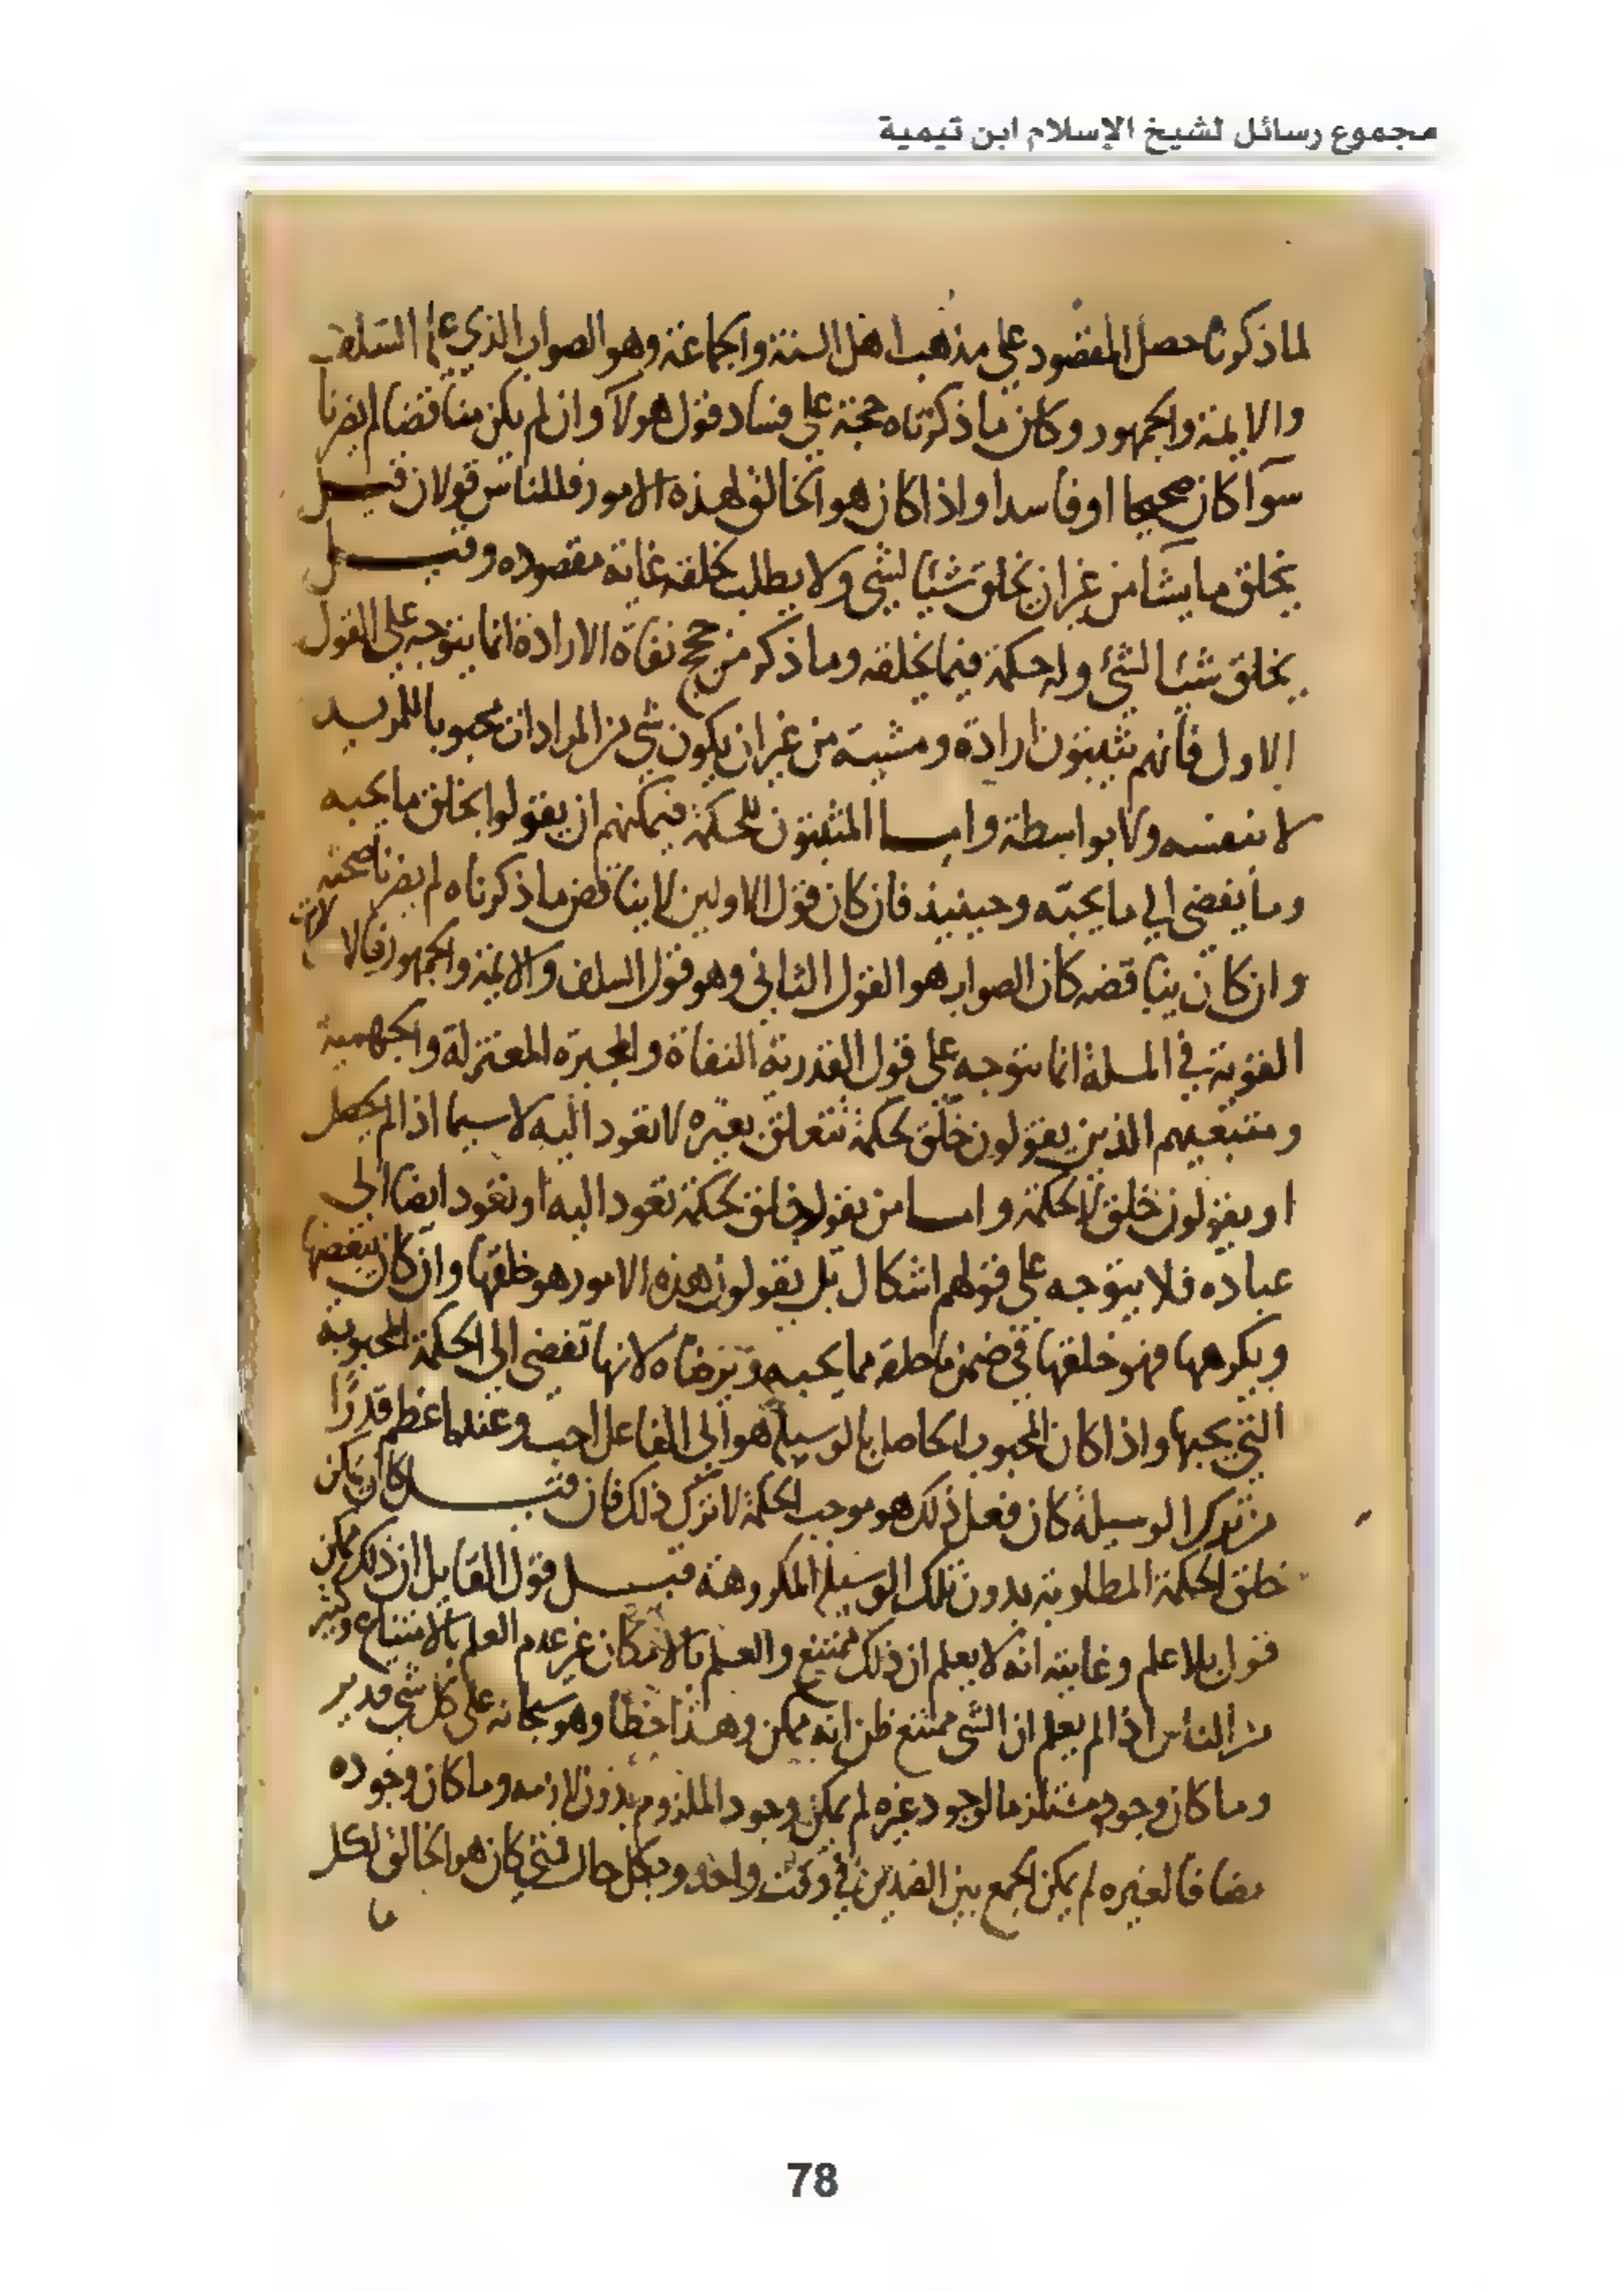 مجموع رسائل لشيخ الإسلام ابن تيمية
لما ذكرنا حصل المقصود على مذهب اهل السنة والجماعة وهو الصواب الذي عليه السلف
والايمة والجمهور وكان ما ذكرناه حجة على فساد قول هولاء وان لم يكن مناقضا لم يضرنا
سوآ كان صحيحا او فاسدا واذا كان هو الخالق لهذه الامور فللناس قولان قيل
يخلق ما يشا من غير ان يخلق شيئا لشي ولا يطلب بخلقه غاية مقصوده وقيل
يخلق شيئا لشئ وله حكمة فيما يخلقه وما ذكر من حجج نفاة الارادة انما يتوجه على القول
الاول فانهم يثبتون ارادة ومشية من غير ان يكون شي من المرادات محبوبا للمريد
لا بنفسه ولا بواسطة واما المثبتون للحكمة فيمكنهم ان يقولوا يخلق ما يحبه
وما يفضي الى ما يحبه وحينيذ فان كان قول الاولين لا يناقض ما ذكرناه لم يضرنا صحته
وان كان يناقضه كان الصواب هو القول الثاني وهو قول السلف والايمة والجمهور فالالزامات
القوية في المسلة انما يتوجه على قول القدرية النفاة والمجبرة المعتزلة والجهمية
ومتبعيهم الذين يقولون خلق لحكمة تتعلق بغيره لا تعود اليه لا سيما اذا لم يحصل
او يقولون خلق لا لحكمة واما من يقول خلق لحكمة تعود اليه او تعود ايضا الى
عباده فلا يتوجه على قولهم اشكال بل يقولون هذه الامور هو خلقها وان كان يبغضها
ويكرهها فهو خلقها في ضمن ما خلقه مما يحبه ويرضاه لانها تفضي الى الحكمة المحبوبة
التي يحبها واذا كان المحبوب الحاصل بالوسيلة هو الى الفاعل احب وعنده اعظم قدرا
من ترك الوسيلة كان فعل ذلك هو موجب الحكمة لا ترك ذلك فان قيل كان يمكن
خلق الحكمة المطلوبة بدون تلك الوسيلة المكروهة قيل قول القايل ان ذلك ممكن
قول بلا علم وغايته انه لا يعلم ان ذلك ممتنع والعلم بالامكان غير عدم العلم بالامتناع وكثير
من الناس اذا لم يعلم ان الشي ممتنع ظن انه ممكن وهذا خطا وهو سبحانه على كل شي قدير
وما كان وجوده مستلزما لوجود غيره لم يمكن وجود الملزوم بدون لازمه وما كان وجوده
مضافا لغيره لم يمكن الجمع بين الضدين في وقت واحد وبكل حال فمتى كان هو الخالق لكل
ما
78